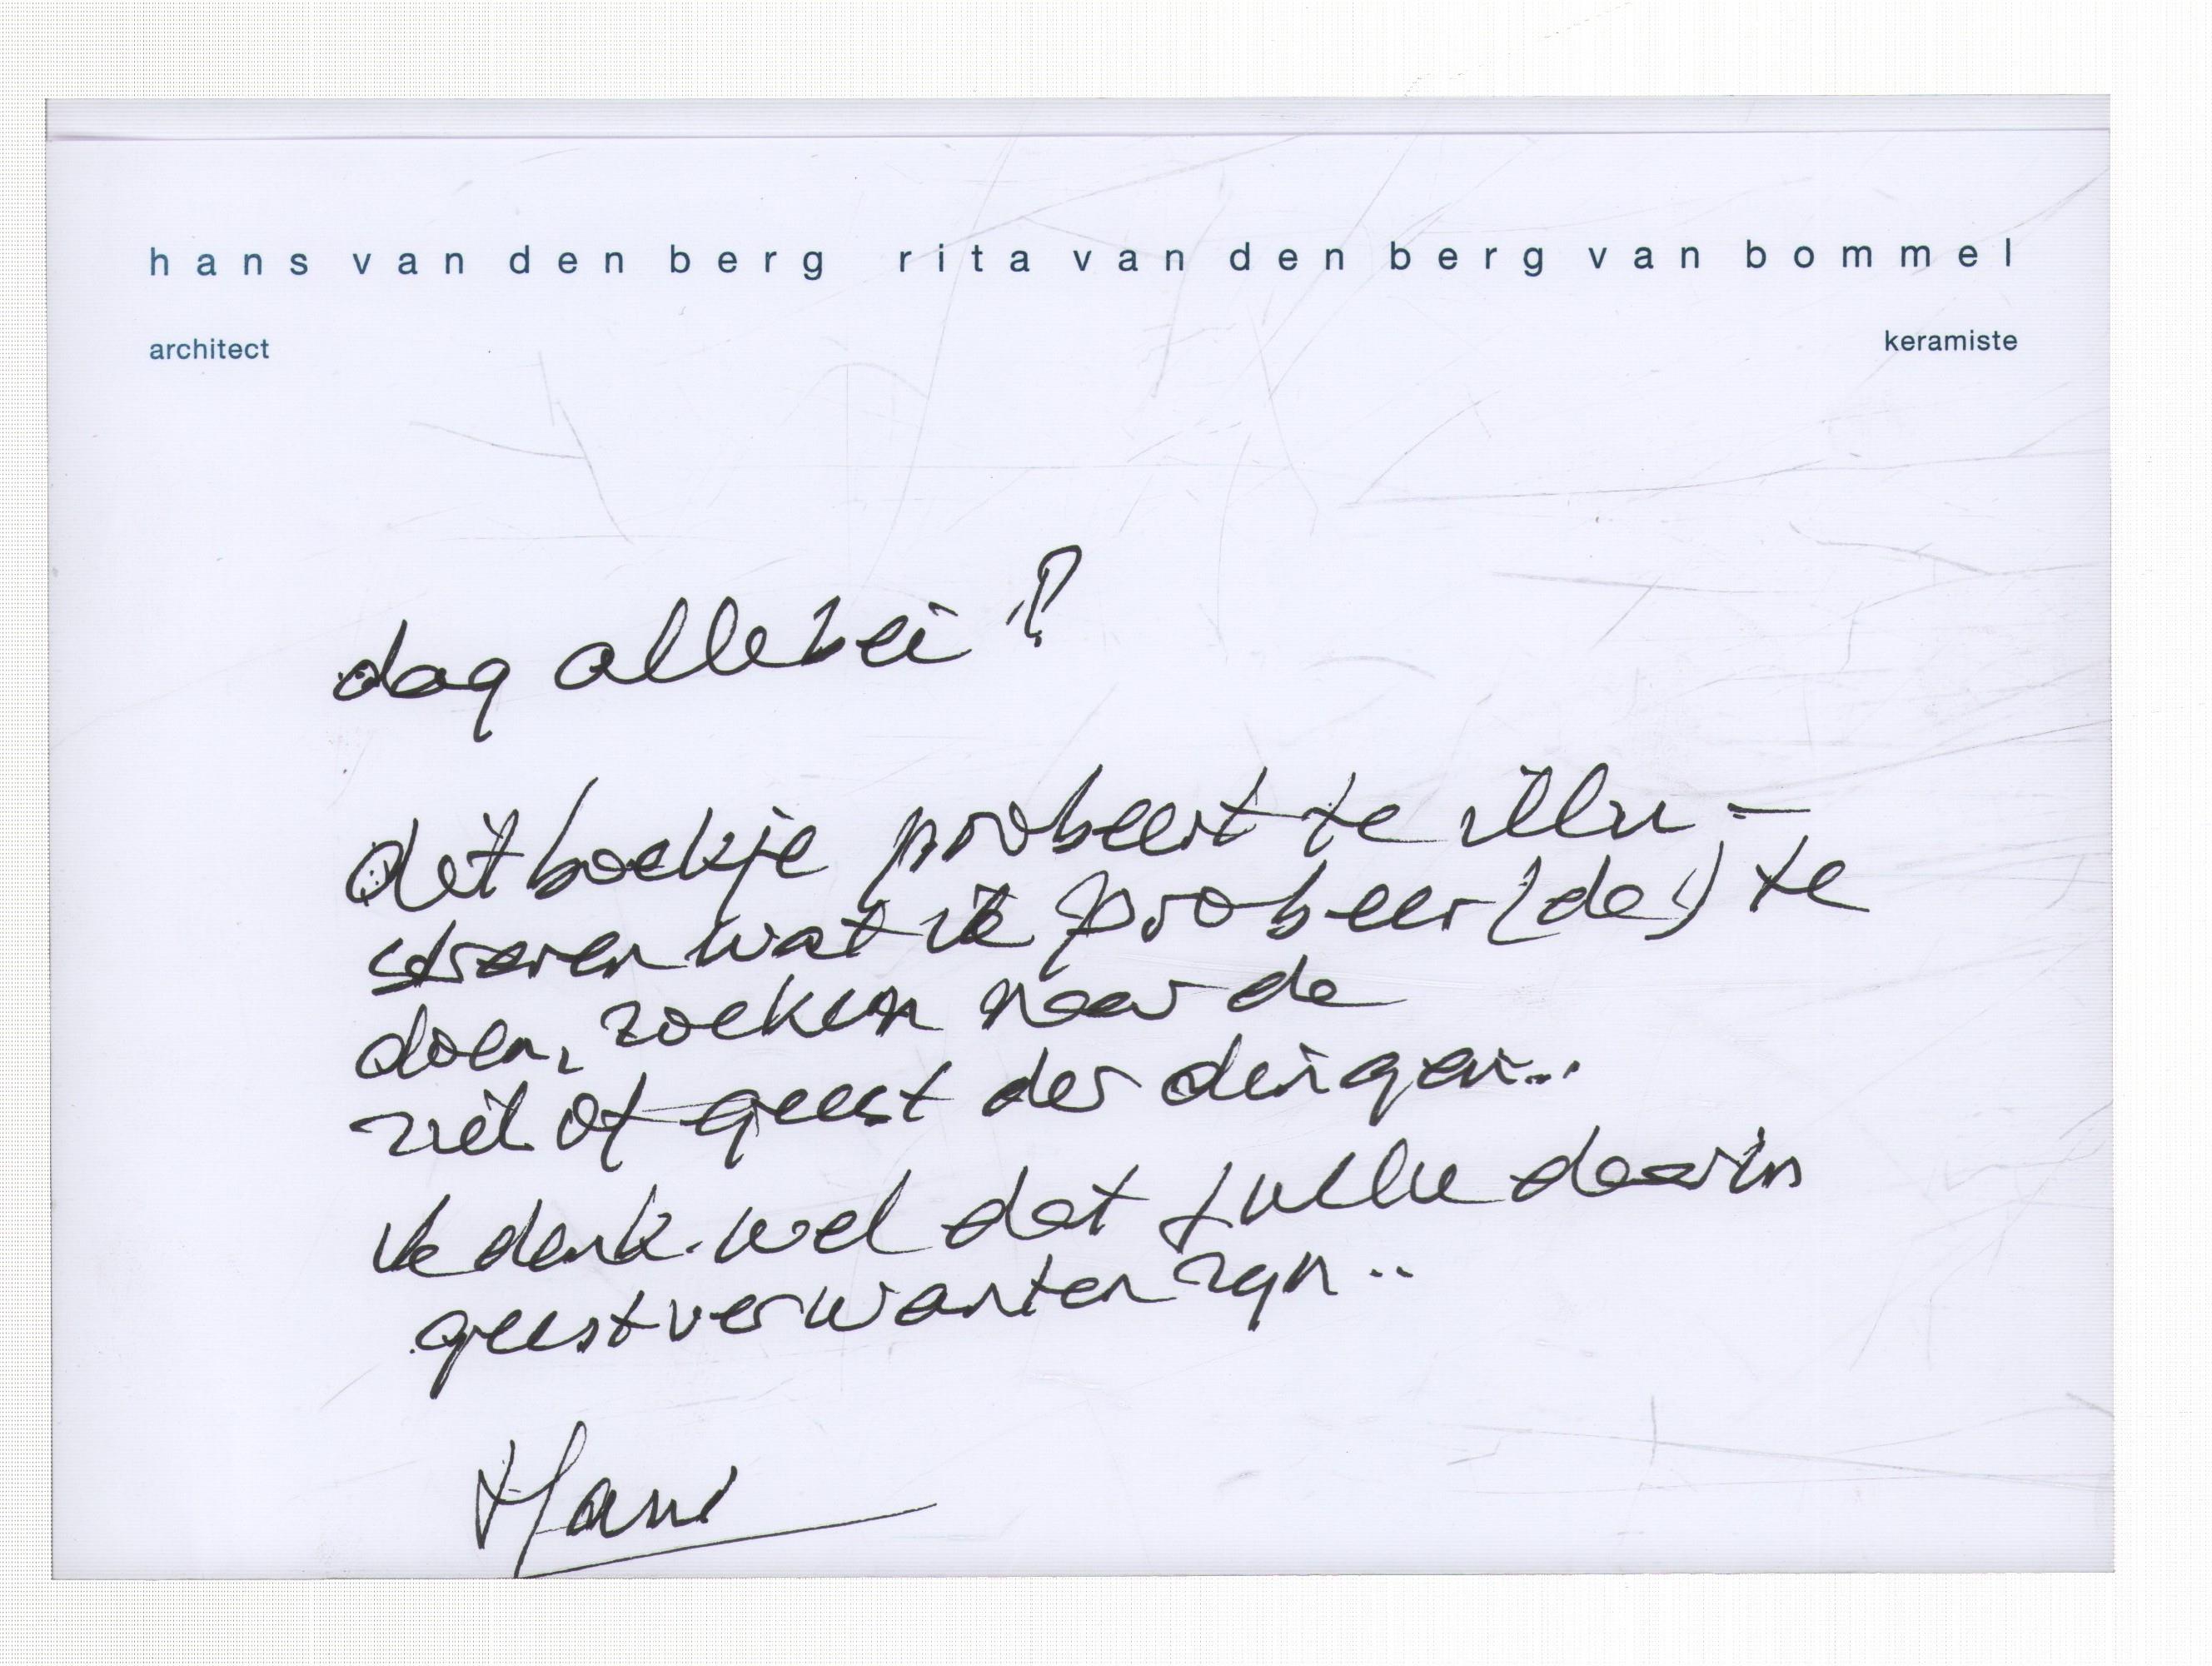 hans van den berg rita van den berg van bommel
architect keramiste
dag allebei!
dit boekje probeert te illu-
streren wat ik probeer(de!) te
doen, zoeken naar de
ziel of geest der dingen...
Ik denk wel dat jullie daarin
geestverwanten zijn..
Hans